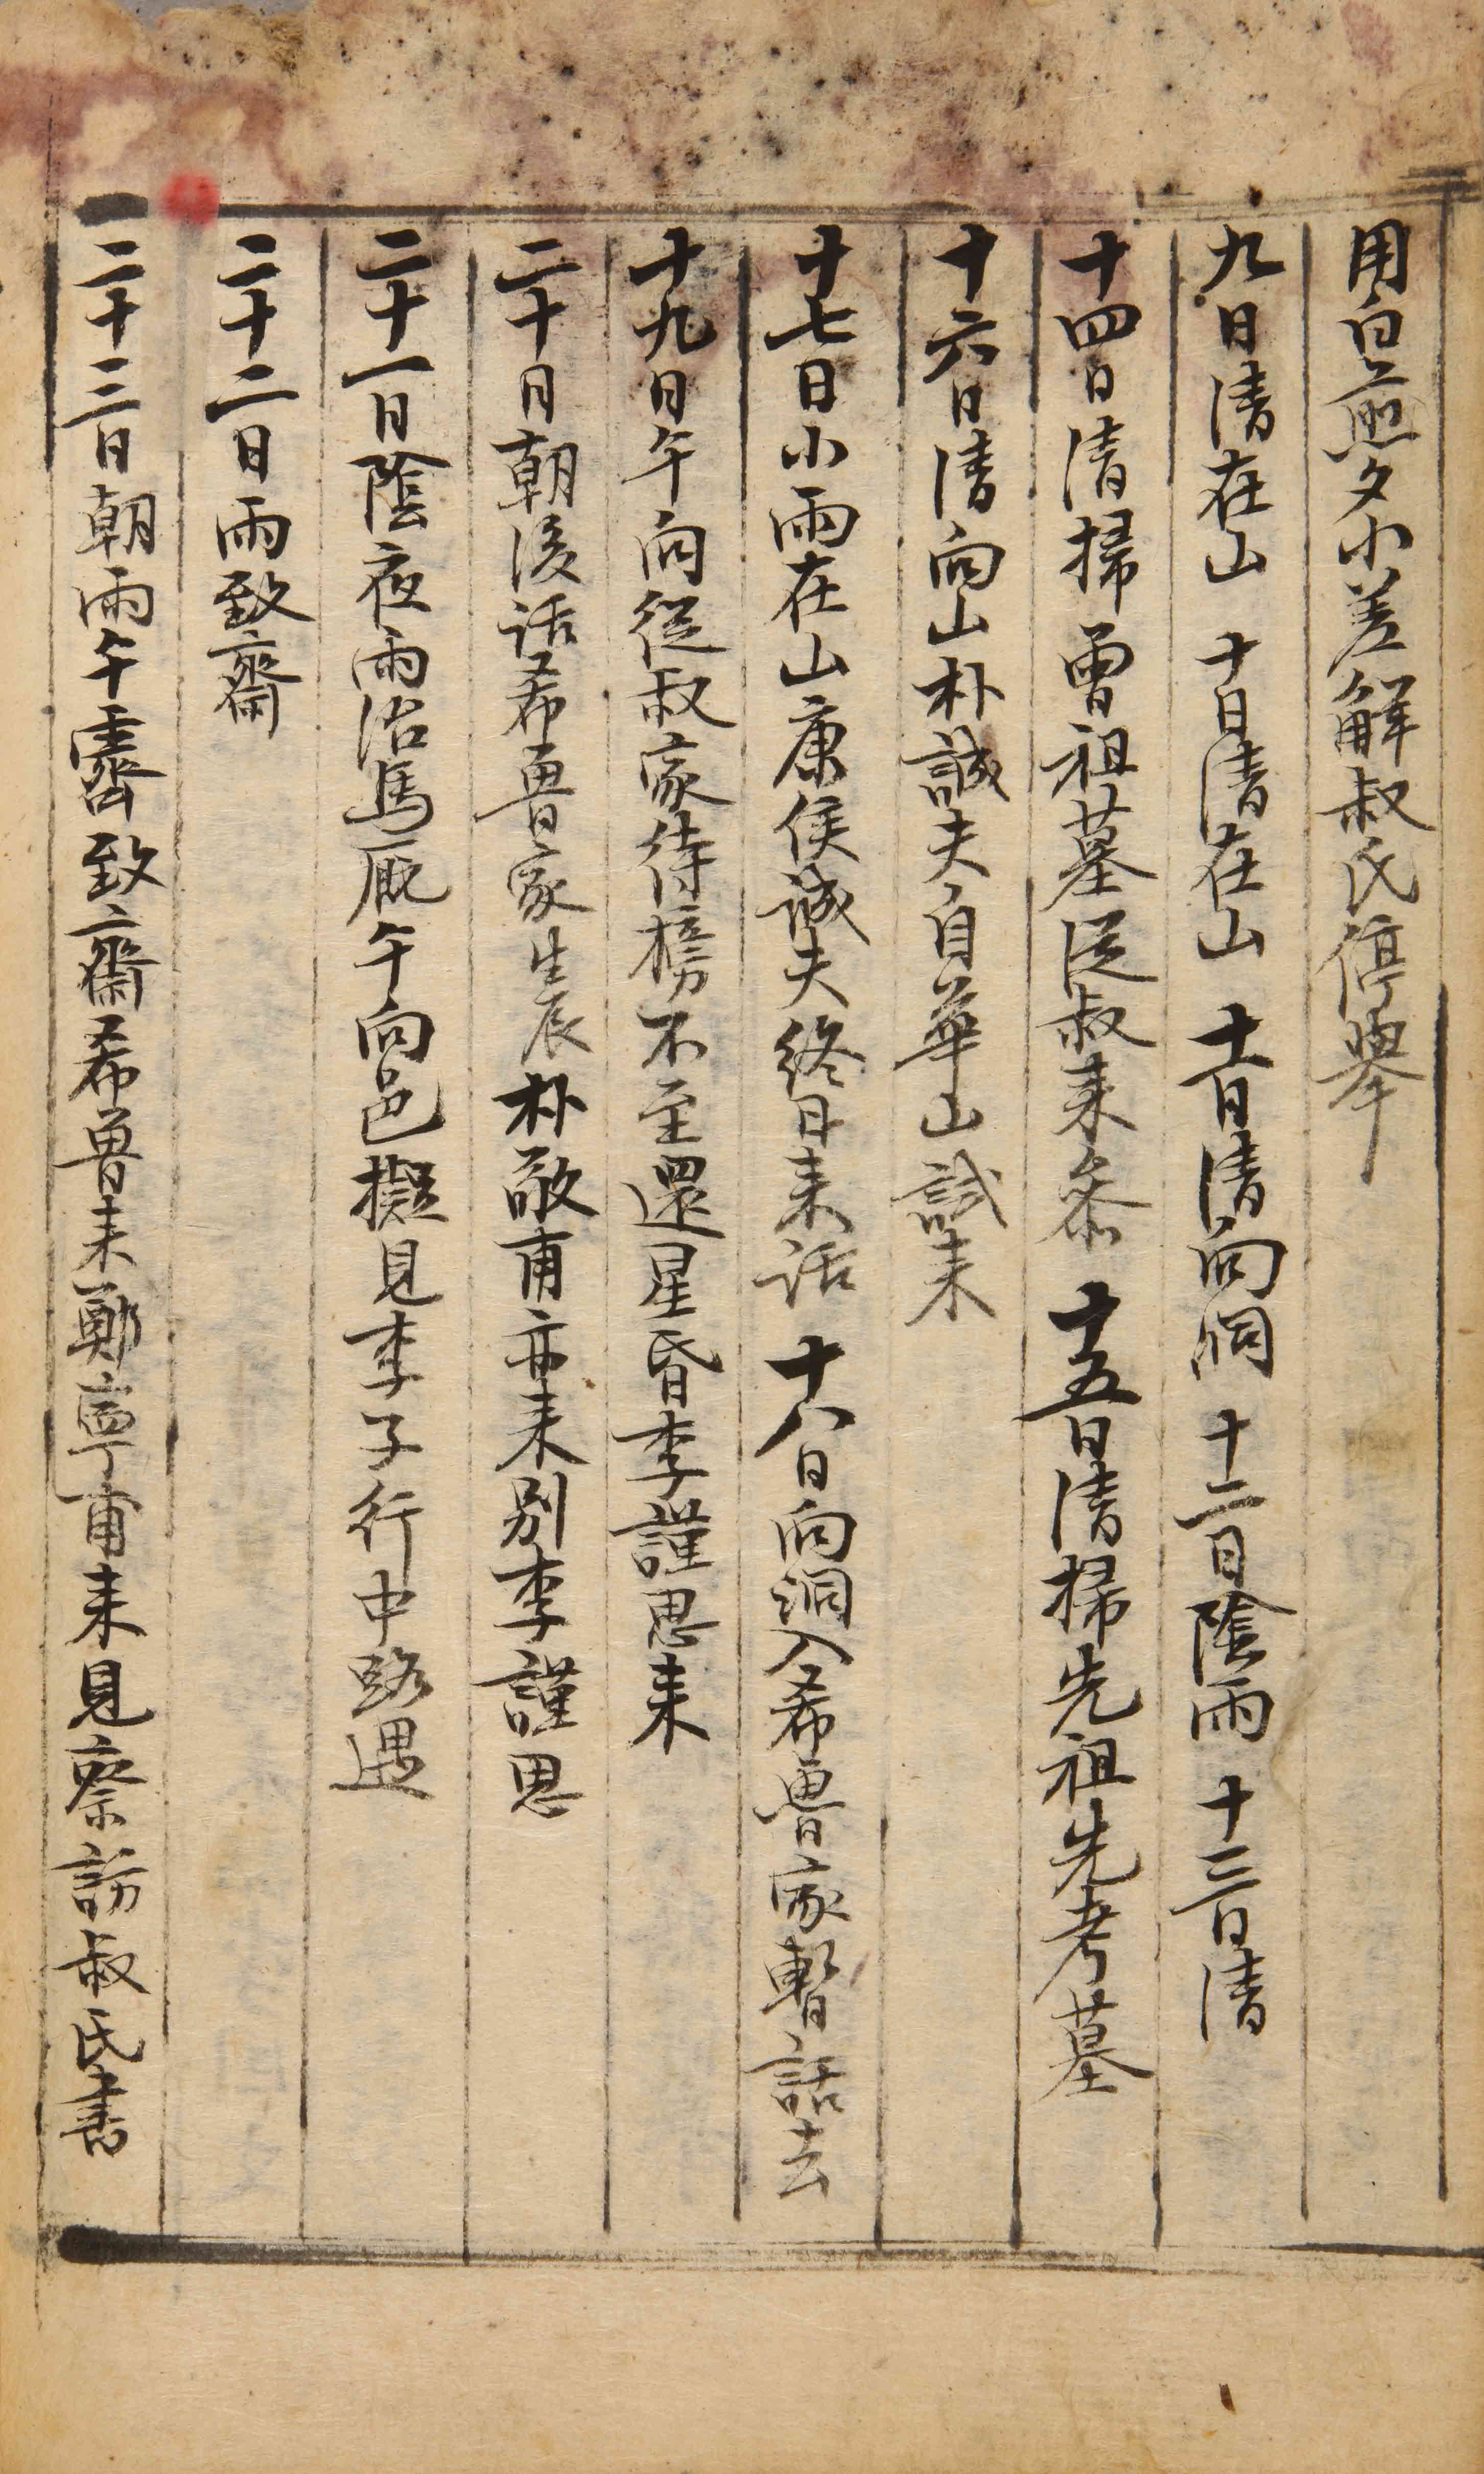 用白煎夕小差解叔氏停擧
九日清在山 十日清在山 十一日清向洞 十二日陰雨 十三日清
十四日清掃曾祖墓從叔來參 十五日清掃先祖先考墓
十六日清向山朴誠夫自華山試來
十七日小雨在山康侯誠夫終日來話 十八日向洞入希魯家暫話去
十九日午向從叔家待榜不至還星昏李謹思來
二十日朝後話希魯家生辰朴敬甫亦來別李謹思
二十一日陰夜雨治馬廐午向邑擬見李子行中路遇
二十二日雨致齋
二十三日朝雨午霽致齋希魯來鄭寧甫來見察訪叔氏書